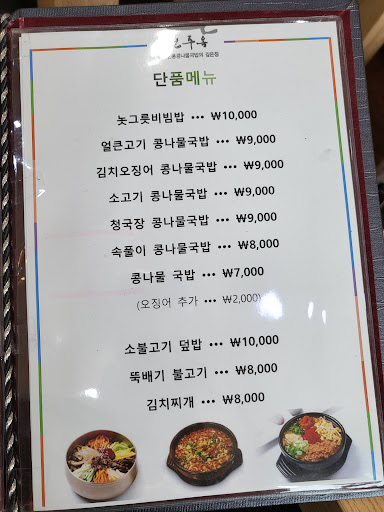 단품메뉴
놋그릇비빔밥 ••• ₩10,000
얼큰고기 콩나물국밥 ••• ₩9,000
김치오징어 콩나물국밥 ••• ₩9,000
소고기 콩나물국밥 ••• ₩9,000
청국장 콩나물국밥 ••• ₩9,000
속풀이 콩나물국밥 ••• ₩8,000
콩나물 국밥 ••• ₩7,000
(오징어 추가 ••• ₩2,000)
소불고기 덮밥 ••• ₩10,000
뚝배기 불고기 ••• ₩8,000
김치찌개 ••• ₩8,000